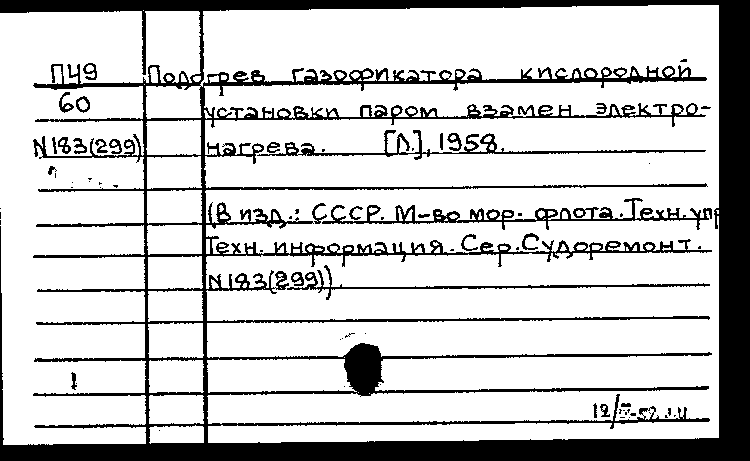 П49 Подогрев газофикатора кислородной
60 установки паром взамен электро-
N183(299) нагрева. [Л.], 1958.
(В изд.: СССР. М-во мор. флота. Техн. упр
Техн. информация. Сер. Судоремонт.
N183(299)).
1